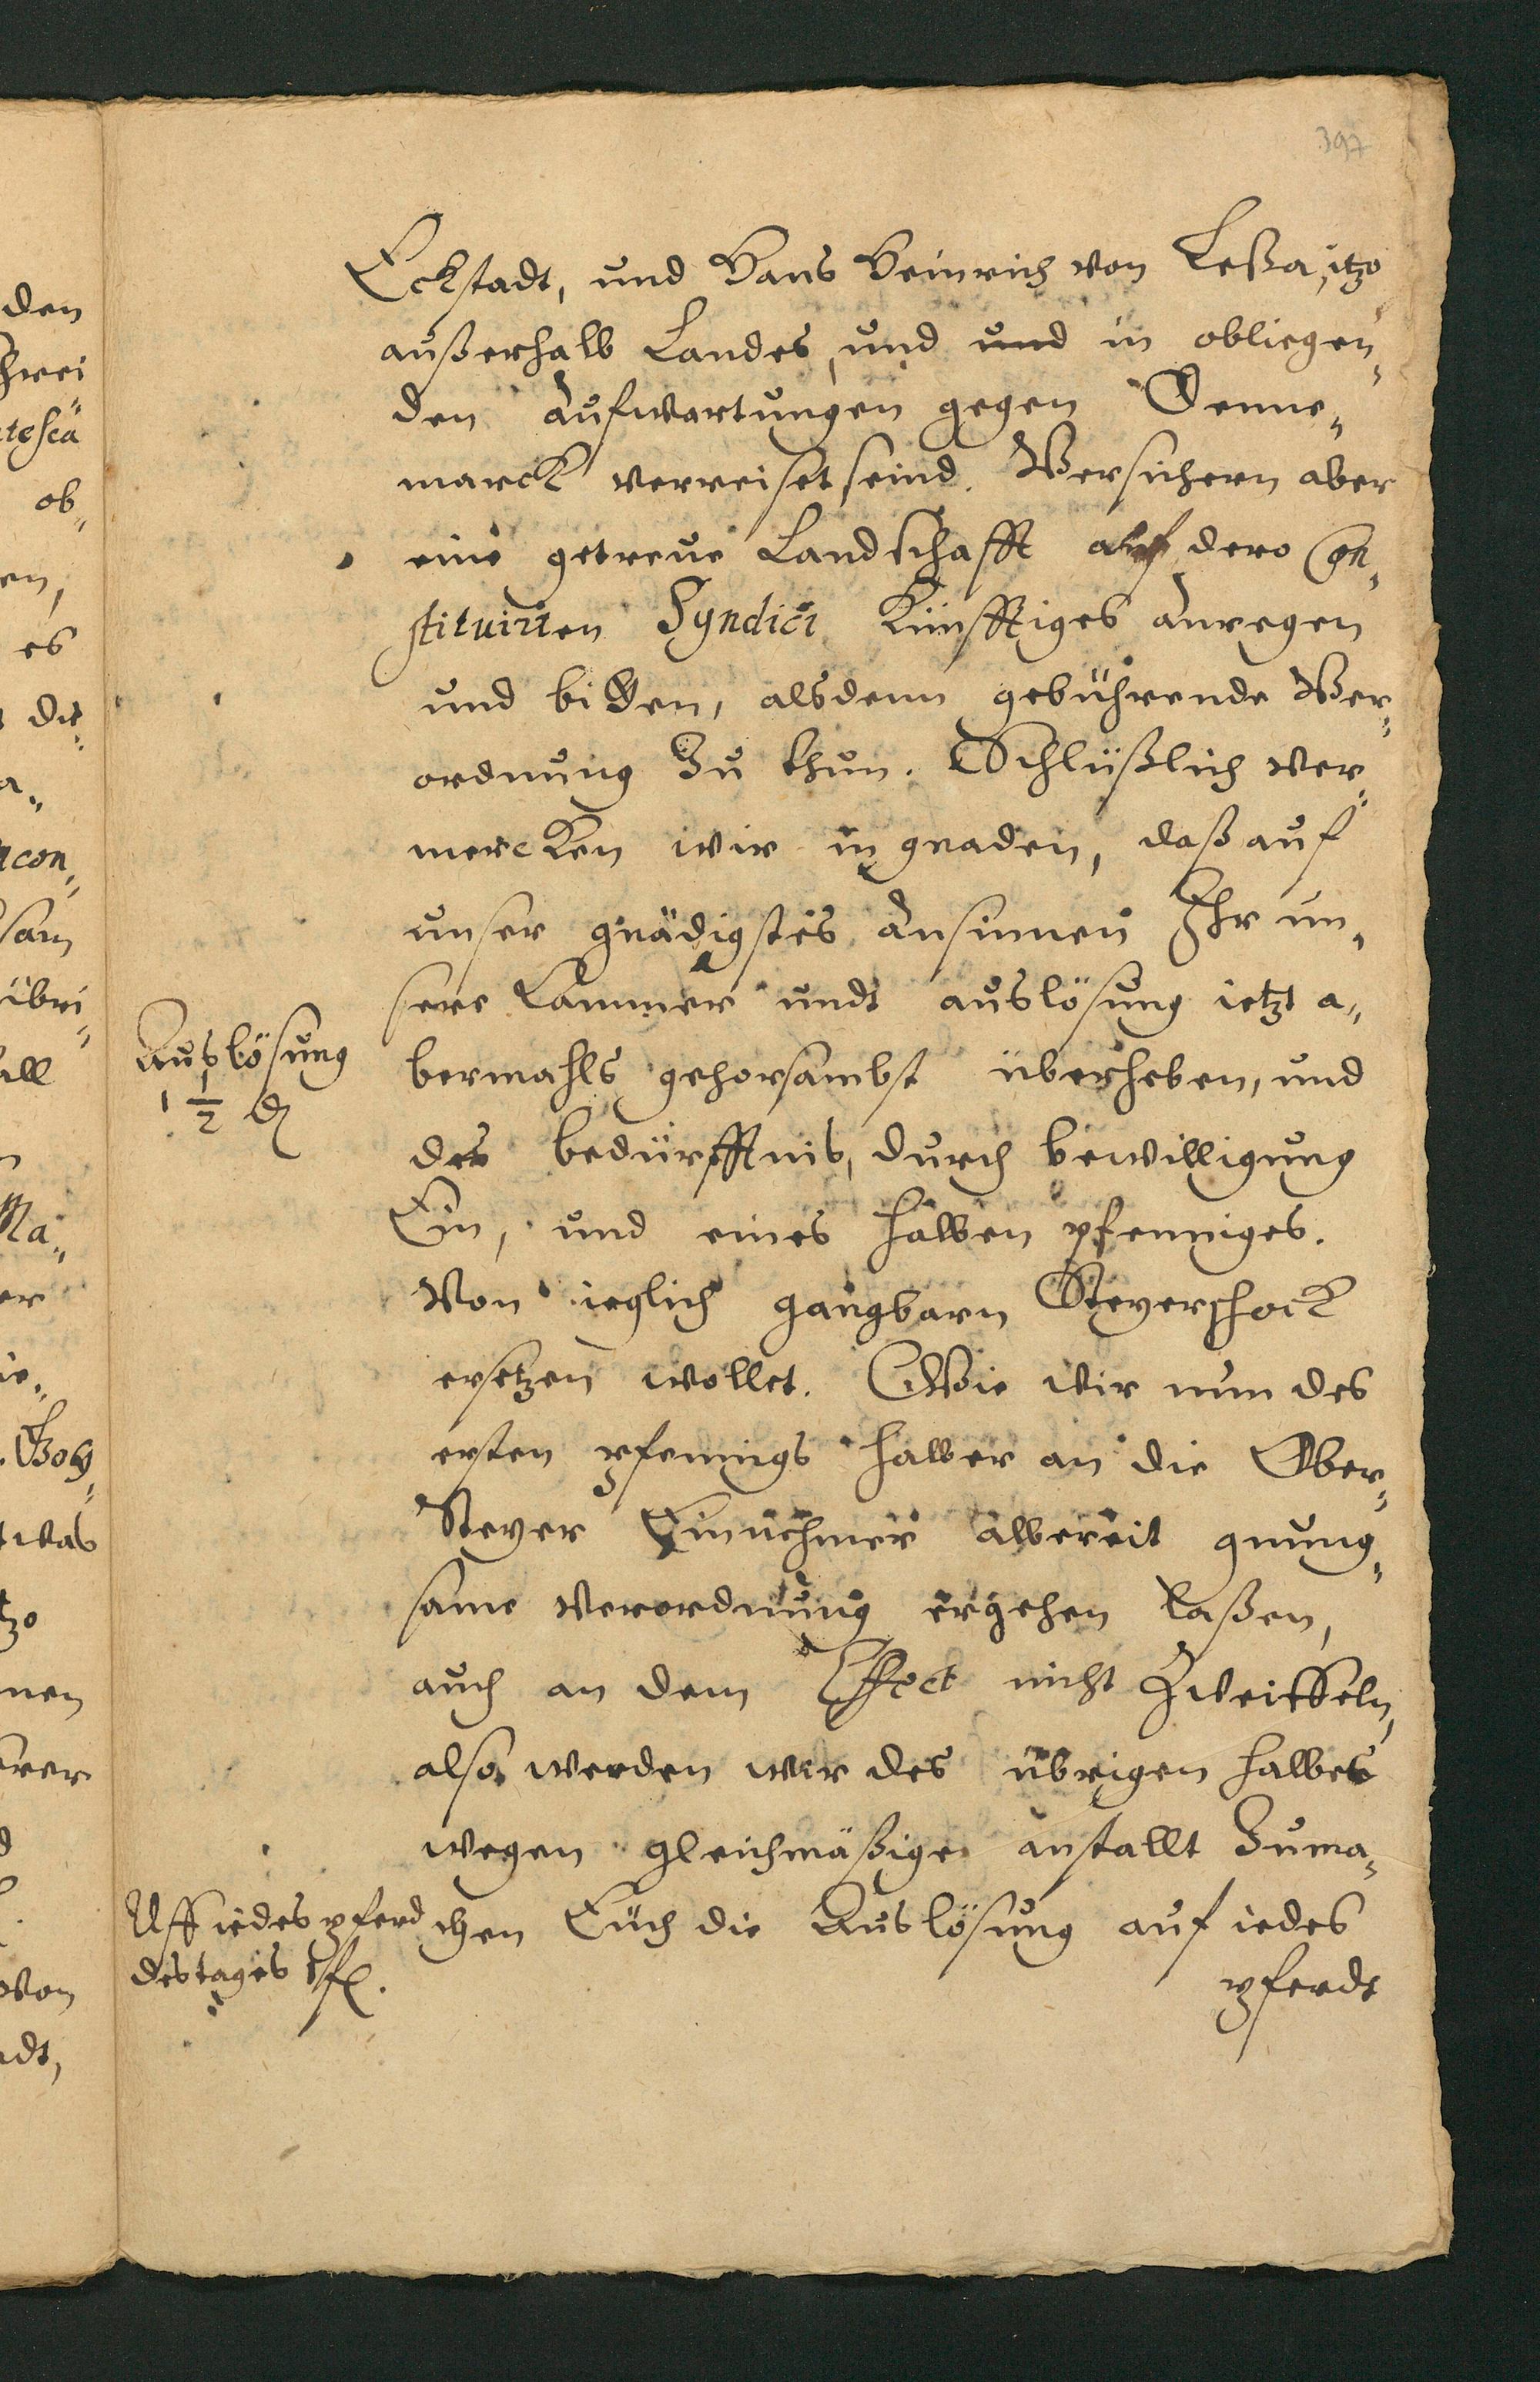 397
Eckstadt, und Hans Heinrich von Leßa, itzo
außerhalb Landes, und und in obliegen„
den Aufwartungen gegen Denne„
marck verreiset seind. Versichern aber
eine getreue Landschafft auf dero Con„
stituirten Syndici Künfftiges anregen
und bitten, alsdenn gebührende Ver„
ordnung Zu thun. Schlüßlich ver„
mercken wir in gnaden, daß auf
unser gnädigstes Ansinnen Ihr un„
sere Cammer undt auslösung ietzt a„
bermahls gehorsambst überheben, und
des bedürffnis, durch bewilligung
Ein, und eines halben pfenniges.
Von ieglich gangbarn Steyerschock
ersetzen wollet. Wie wir nun des
ersten pfennigs halber an die Ober„
Steyer Einnehmer albereit gnung„
same Verordnung ergehen laßen,
auch an dem Effect nicht Zweiffeln,
also werden wir des übrigen halben
wegen gleichmäßige anstallt Zuma„
chen Euch die Auslösung auf iedes
pferdt
Auslösung
1 1/2 ₰
Uff iedes pferd
des tages 1 fl.
den
ob„
en,
es
die
a„
acon„
sam
übri„
all
Ma„
er
ie„
was
tzo
nen
erer
von
adt,